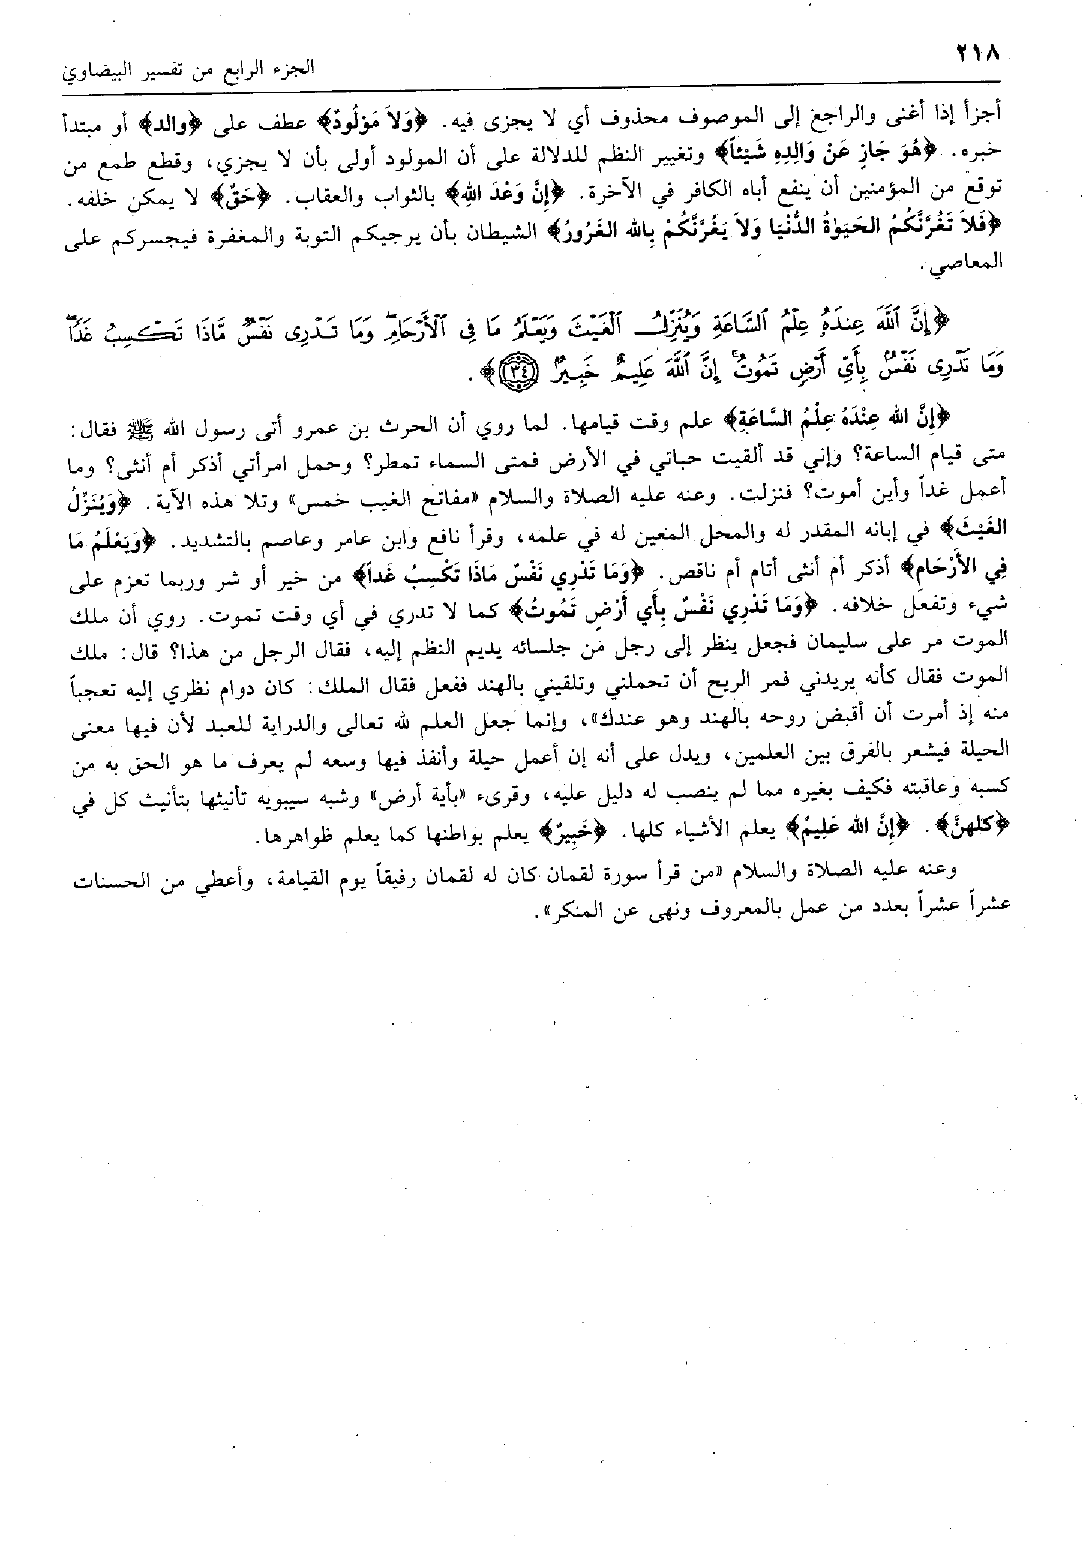 ٢١٨
الجزء الرابع من تفسير البيضاوي
أجزأ إذا أغنى والراجع إلى الموصوف محذوف أي لا يجزى فيه. ﴿وَلاَ مَوْلُودٌ﴾ عطف على ﴿والد﴾ أو مبتدأ
خبره. ﴿هُوَ جَازٍ عَنْ وَالِدِهِ شَيْئاً﴾ وتغيير النظم للدلالة على أن المولود أولى بأن لا يجزي، وقطع طمع من
توقع من المؤمنين أن ينفع أباه الكافر في الآخرة. ﴿إِنَّ وَعْدَ اللهِ﴾ بالثواب والعقاب. ﴿حَقٌّ﴾ لا يمكن خلفه.
﴿فَلاَ تَغُرَّنَّكُمُ الحَيَوٰةُ الدُّنْيَا وَلاَ يَغُرَّنَّكُمْ بِاللهِ الغَرُورُ﴾ الشيطان بأن يرجيكم التوبة والمغفرة فيجسركم على
المعاصي.
﴿إِنَّ ٱللَّهَ عِندَهُۥ عِلْمُ ٱلسَّاعَةِ وَيُنَزِّلُ ٱلْغَيْثَ وَيَعْلَمُ مَا فِى ٱلْأَرْحَامِ وَمَا تَدْرِى نَفْسٌ مَّاذَا تَكْسِبُ غَدًا
وَمَا تَدْرِى نَفْسٌ بِأَىِّ أَرْضٍ تَمُوتُ إِنَّ ٱللَّهَ عَلِيمٌ خَبِيرٌ ﴿٣٤﴾﴾.
﴿إِنَّ الله عِنْدَهُ عِلْمُ السَّاعَةِ﴾ علم وقت قيامها. لما روي أن الحرث بن عمرو أتى رسول الله ﷺ فقال:
متى قيام الساعة؟ وإني قد ألقيت حباتي في الأرض فمتى السماء تمطر؟ وحمل امرأتي أذكر أم أنثى؟ وما
أعمل غداً وأين أموت؟ فنزلت. وعنه عليه الصلاة والسلام «مفاتح الغيب خمس» وتلا هذه الآية. ﴿وَيُنَزِّلُ
الغَيْثَ﴾ في إبانه المقدر له والمحل المعين له في علمه، وقرأ نافع وابن عامر وعاصم بالتشديد. ﴿وَيَعْلَمُ مَا
فِي الأَرْحَامِ﴾ أذكر أم أنثى أتام أم ناقص. ﴿وَمَا تَدْرِي نَفْسٌ مَاذَا تَكْسِبُ غَداً﴾ من خير أو شر وربما تعزم على
شيء وتفعل خلافه. ﴿وَمَا تَدْرِي نَفْسٌ بِأَي أَرْضٍ تَمُوتُ﴾ كما لا تدري في أي وقت تموت. روي أن ملك
الموت مر على سليمان فجعل ينظر إلى رجل من جلسائه يديم النظم إليه، فقال الرجل من هذا؟ قال: ملك
الموت فقال كأنه يريدني فمر الريح أن تحملني وتلقيني بالهند ففعل فقال الملك: كان دوام نظري إليه تعجباً
منه إذ أمرت أن أقبض روحه بالهند وهو عندك»، وإنما جعل العلم لله تعالى والدراية للعبد لأن فيها معنى
الحيلة فيشعر بالفرق بين العلمين، ويدل على أنه إن أعمل حيلة وأنفذ فيها وسعه لم يعرف ما هو الحق به من
كسبه وعاقبته فكيف بغيره مما لم ينصب له دليل عليه، وقرىء «بأية أرض» وشبه سيبويه تأنيثها بتأنيث كل في
﴿كلهنَّ﴾. ﴿إِنَّ الله عَلِيمٌ﴾ يعلم الأشياء كلها. ﴿خَبِيرٌ﴾ يعلم بواطنها كما يعلم ظواهرها.
وعنه عليه الصلاة والسلام «من قرأ سورة لقمان كان له لقمان رفيقاً يوم القيامة، وأعطي من الحسنات
عشراً عشراً بعدد من عمل بالمعروف ونهى عن المنكر».